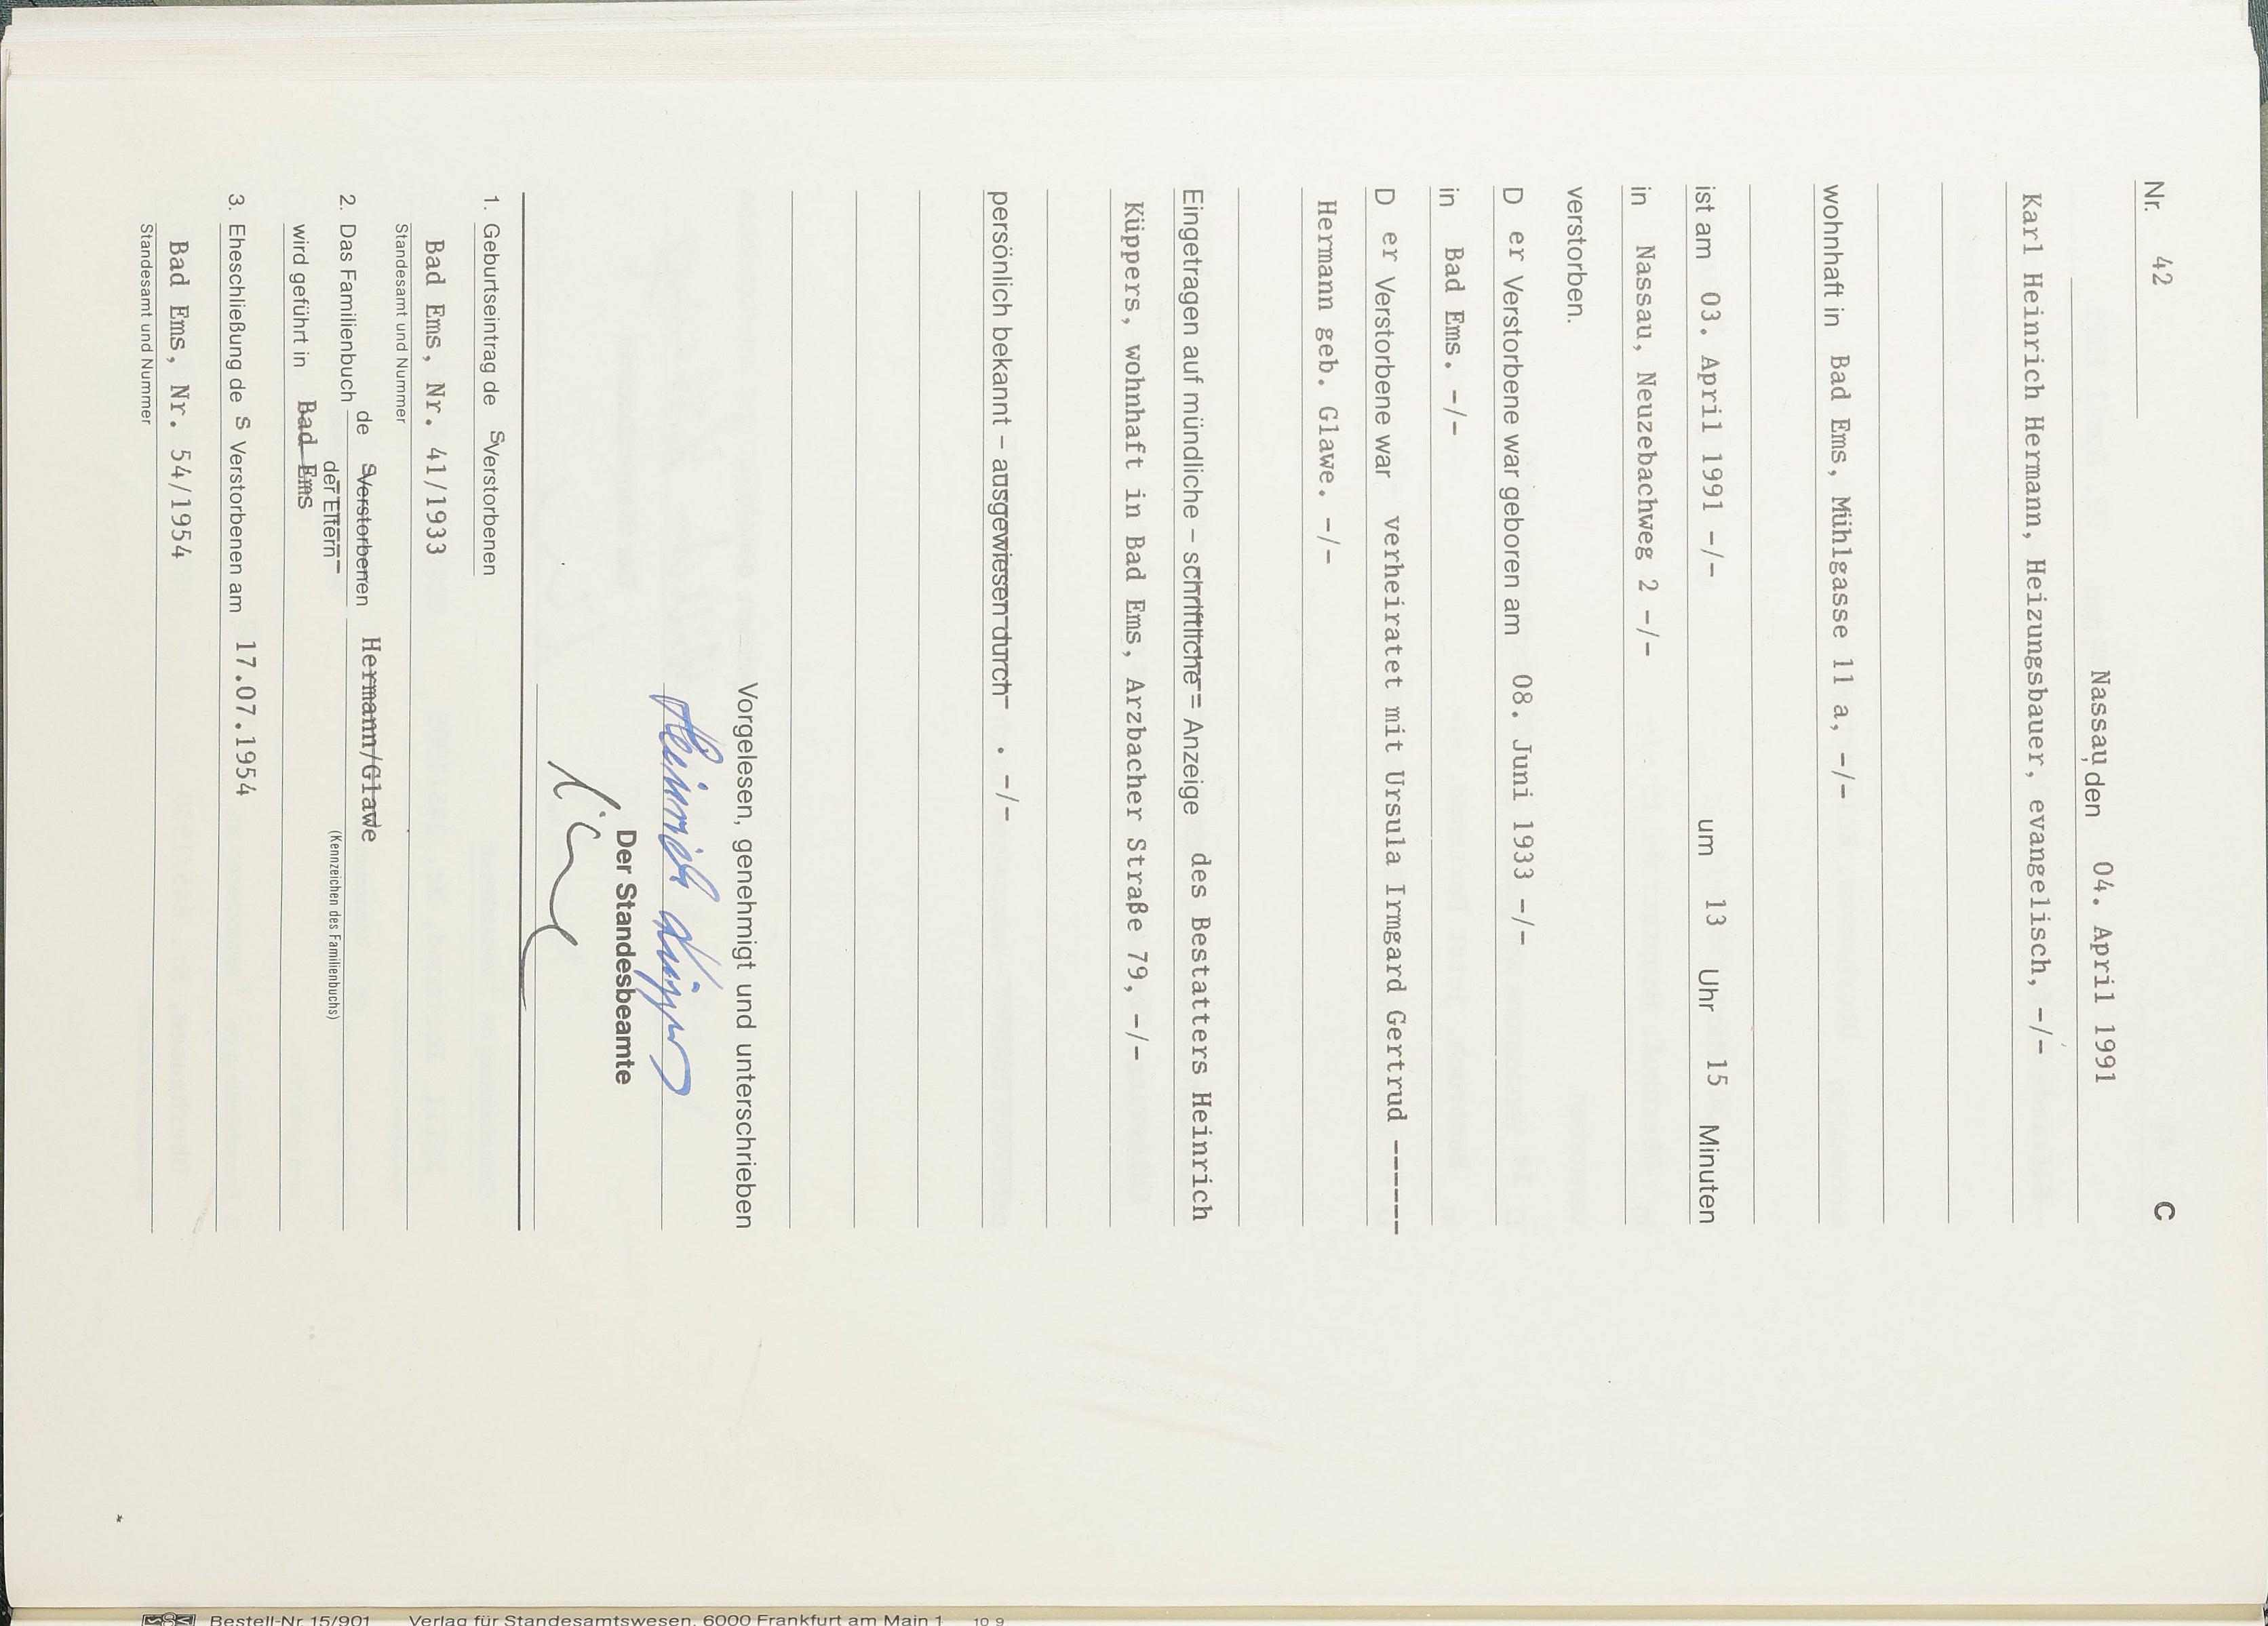 Nr. 42 C
Nassau, den 04. April 1991
Karl Heinrich Hermann, Heizungsbauer, evangelisch, -/-
wohnhaft in Bad Ems, Mühlgasse 11 a, -/-
ist am 03. April 1991 -/- um 13 Uhr 15 Minuten
in Nassau, Neuzebachweg 2 -/-
verstorben.
D er Verstorbene war geboren am 08. Juni 1933 -/-
in Bad Ems. -/-
D er Verstorbene war verheiratet mit Ursula Irmgard Gertrud ------
Hermann geb. Glawe. -/-
Eingetragen auf mündliche – schriftliche – Anzeige des Bestatters Heinrich
Küppers, wohnhaft in Bad Ems, Arzbacher Straße 79, -/-
persönlich bekannt – ausgewiesen durch . -/-
Vorgelesen, genehmigt und unterschrieben
Heinrich Küppers
Der Standesbeamte
1. Geburtseintrag de s Verstorbenen
Bad Ems, Nr. 41/1933
Standesamt und Nummer
2. Das Familienbuch de s Verstorbenen Hermann/Glawe
der Eltern (Kennzeichen des Familienbuchs)
wird geführt in Bad Ems
3. Eheschließung de s Verstorbenen am 17.07.1954
Bad Ems, Nr. 54/1954
Standesamt und Nummer
Bestell-Nr. 15/901 Verlag für Standesamtswesen, 6000 Frankfurt am Main 1